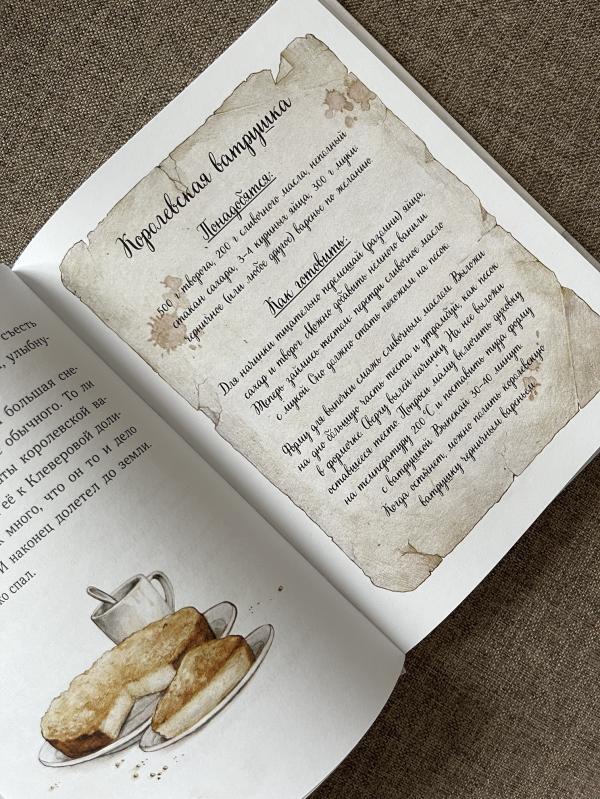 съесть
, улыбну-
большая сне-
обычного. То ли
ты королевской ва-
её к Клеверовой доли-
много, что он то и дело
И наконец долетел до земли.
ко спал.
Королевская ватрушка
Понадобятся:
500 г творога, 200 г сливочного масла, неполный
стакан сахара, 3–4 куриных яйца, 300 г муки.
черничное (или любое другое) варенье по желанию.
Как готовить:
Для начинки тщательно перемешай (разомни) яйца,
сахар и творог. Можно добавить немного ванили.
Теперь займись тестом: перетри сливочное масло
с мукой. Оно должно стать похожим на песок.
Форму для выпечки смажь сливочным маслом. Выложи
на дно большую часть теста и утрамбуй, как песок
в формочке. Сверху вылей начинку. На неё выложи
оставшееся тесто. Попроси маму включить духовку
на температуру 200 °С и поставить туда форму
с ватрушкой. Выпекай 30–40 минут.
Когда остынет, можно полить королевскую
ватрушку черничным вареньем.